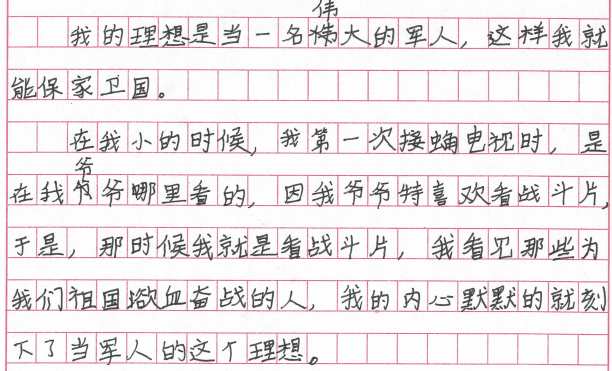 我的理想是当一名伟大的军人，这样我就
能保家卫国。
在我小的时候，我第一次接触电视时，是
在我爷爷哪里看的，因我爷爷特喜欢看战斗片，
于是，那时候我就是看战斗片，我看见那些为
我们祖国浴血奋战的人，我的内心默默的就刻
下了当军人的这个理想。